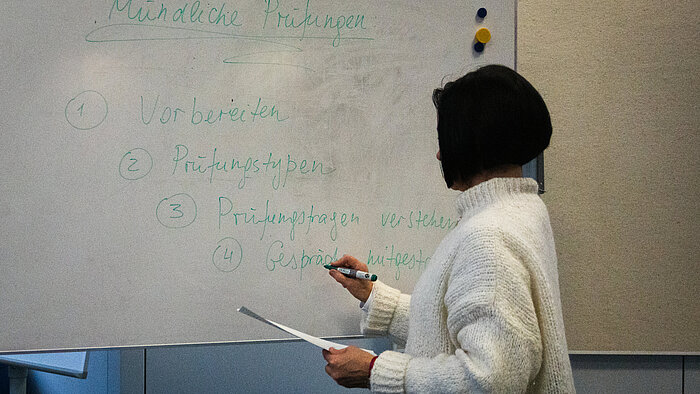 Mündliche Prüfungen
1 Vorbereiten
2 Prüfungstypen
3 Prüfungsfragen verstehen
4 Gespräch